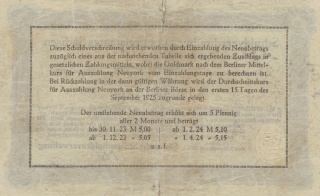 Diese Schuldverschreibung wird erworben durch Einzahlung des Nennbetrags
zuzüglich eines aus der nachstehenden Tabelle sich ergebenden Zuschlags in
gesetzlichen Zahlungsmitteln, wobei die Goldmark nach dem Berliner Mittel-
kurs für Auszahlung Neuyork vom Einzahlungstage zu berechnen ist.
Bei Rückzahlung in der dann gültigen Währung wird der Durchschnittskurs
für Auszahlung Neuyork an der Berliner Börse in den ersten 15 Tagen des
September 1925 zugrunde gelegt.
Der umstehende Nennbetrag erhöht sich um 5 Pfennig
alle 2 Monate und beträgt
bis 30. 11. 23 M 5,00 ab 1. 2. 24 M 5,10
ab 1. 12. 23 " 5,05 " 1. 4. 24 " 5,15
u. s. f.